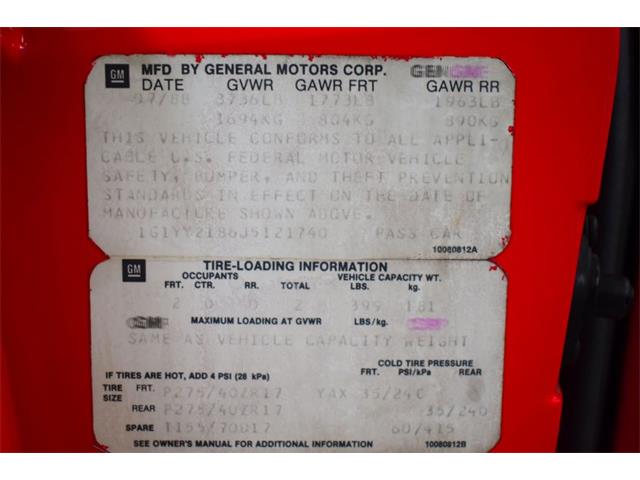 GM MFD BY GENERAL MOTORS CORP. GEN
DATE GVWR GAWR FRT GAWR RR
07/88 3736LB 1773LB 1963LB
1694KG 804KG 890KG
THIS VEHICLE CONFORMS TO ALL APPLI-
CABLE U.S. FEDERAL MOTOR VEHICLE
SAFETY, BUMPER, AND THEFT PREVENTION
STANDARDS IN EFFECT ON THE DATE OF
MANUFACTURE SHOWN ABOVE.
1G1YY2186J5121740 PASS CAR
10080812A
GM TIRE-LOADING INFORMATION
OCCUPANTS VEHICLE CAPACITY WT.
FRT. CTR. RR. TOTAL LBS. kg.
2 0 0 2 399 181
MAXIMUM LOADING @ GVWR LBS/kg.
SAME AS VEHICLE CAPACITY WEIGHT
COLD TIRE PRESSURE
IF TIRES ARE HOT, ADD 4 PSI (28 kPa) FRT. PSI/kPa RR.
TIRE SIZE FRT. P275/40ZR17 YAX 35/240
REAR P275/40ZR17 35/240
SPARE T155/70D17 60/415
SEE OWNER'S MANUAL FOR ADDITIONAL INFORMATION 10080812B